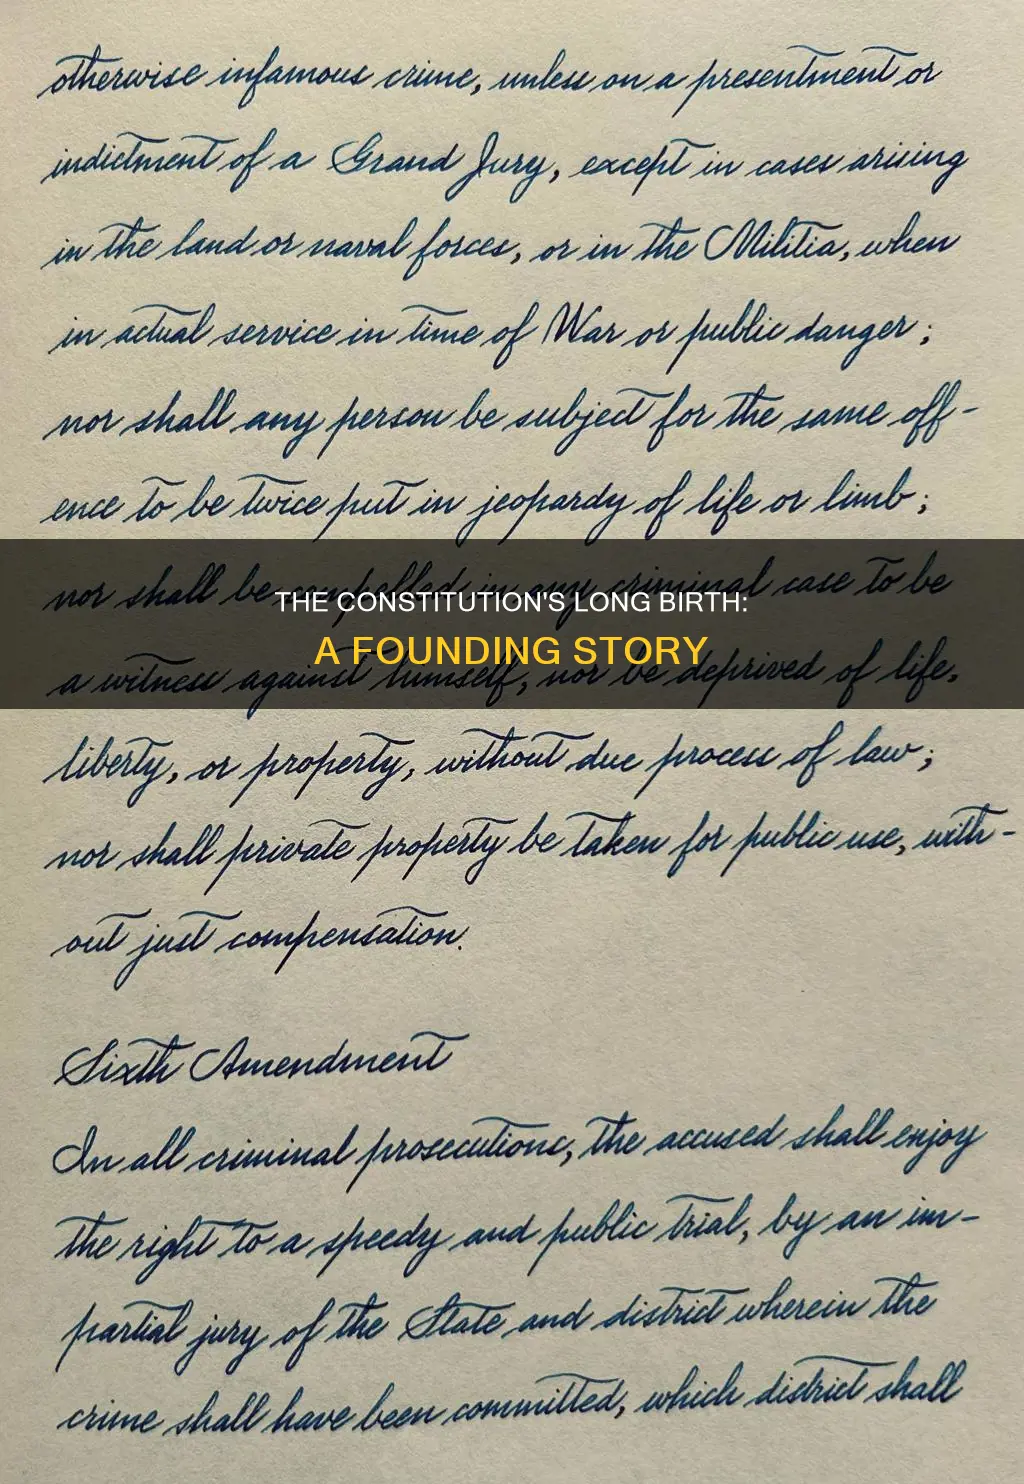 otherwise infamous crime, unless on a presentment or
indictment of a Grand Jury, except in cases arising
in the land or naval forces, or in the Militia, when
in actual service in time of War or public danger;
nor shall any person be subject for the same off-
ence to be twice put in jeopardy of life or limb;
nor shall be compelled in any criminal case to be
THE CONSTITUTION'S LONG BIRTH:
A FOUNDING STORY
a witness against himself, nor be deprived of life,
liberty, or property, without due process of law;
nor shall private property be taken for public use, with-
out just compensation.
Sixth Amendment
In all criminal prosecutions, the accused shall enjoy
the right to a speedy and public trial, by an im-
partial jury of the State and district wherein the
crime shall have been committed, which district shall